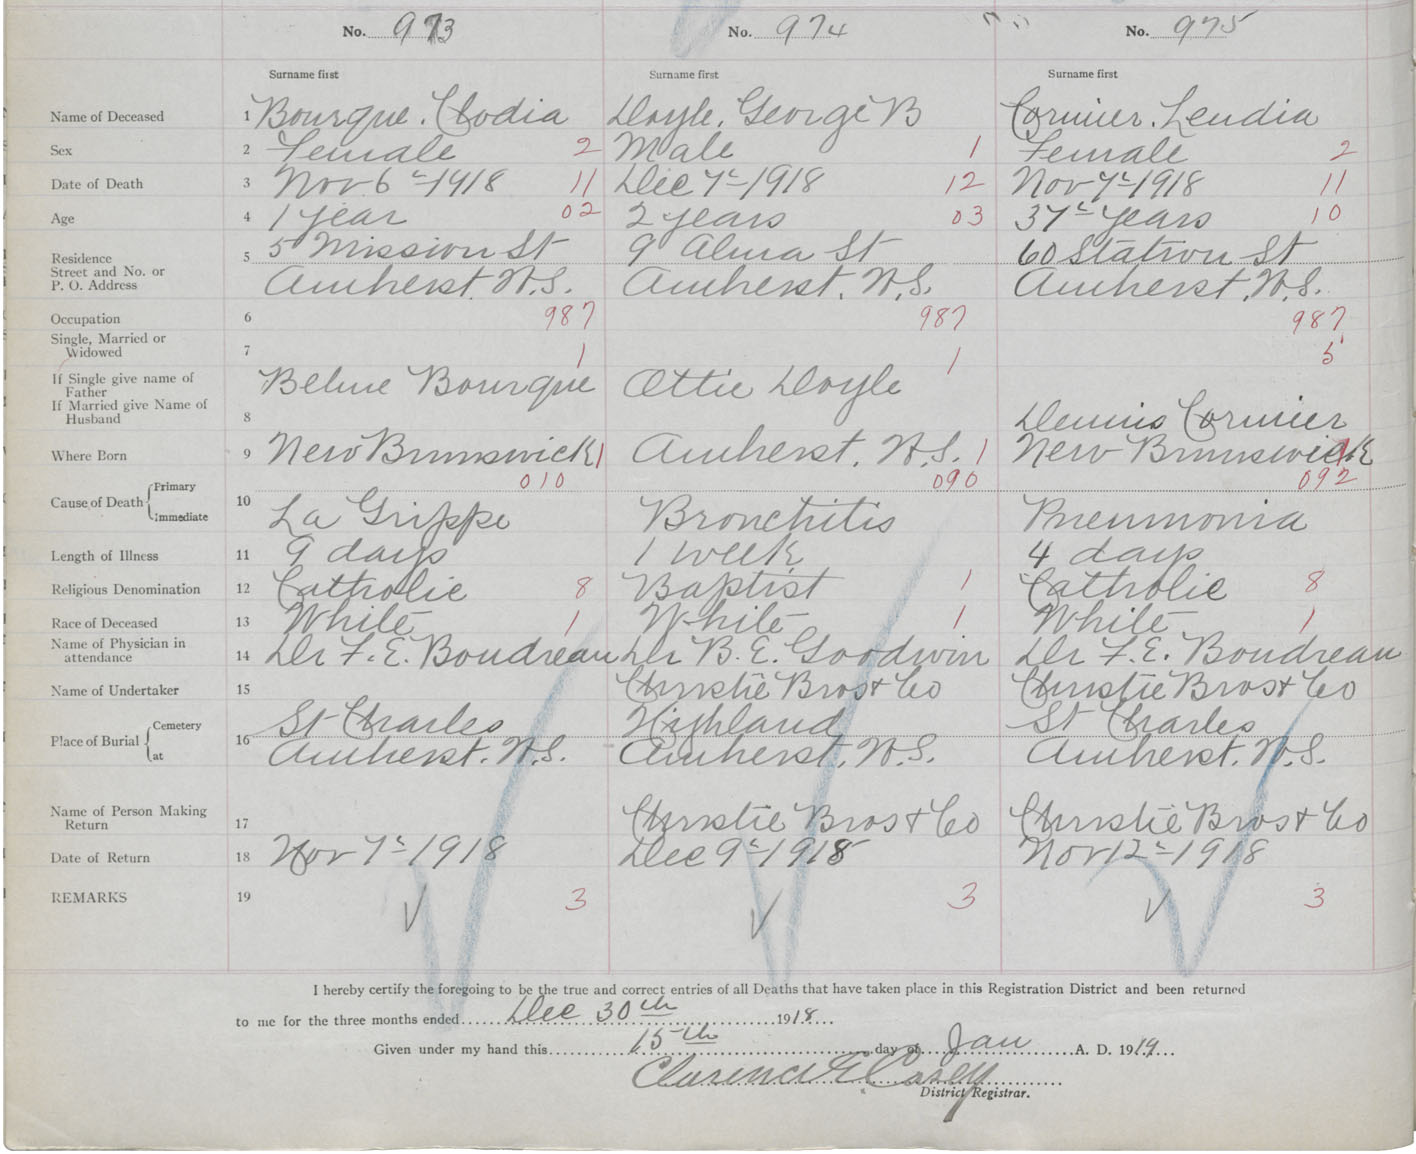 No. 973 No. 974 No. 975
Surname first Surname first Surname first
Name of Deceased 1 Bourque, Clodia Doyle, George B Cormier, Lendia
Sex 2 Female 2 Male 1 Female 2
Date of Death 3 Nov 6th 1918 11 Dec 7th 1918 12 Nov 7th 1918 11
Age 4 1 year 02 2 years 03 37 years 10
Residence 5 5 Mission St 9 Alma St 60 Station St
Street and No. or
P. O. Address Amherst, N.S. Amherst, N.S. Amherst, N.S.
Occupation 6 987 987 987
Single, Married or
Widowed 7 1 1 5
If Single give name of
Father Bourque Ottie Doyle
If Married give Name of
Husband 8 Dennis Cormier
Where Born 9 New Brunswick 1 Amherst, N.S. 1 New Brunswick
010 090 092
Cause of Death Primary
Immediate 10 La Grippe Bronchitis Pneumonia
Length of Illness 11 9 days 1 week 4 days
Religious Denomination 12 Catholic 8 Baptist 1 Catholic 8
Race of Deceased 13 White 1 White 1 White 1
Name of Physician in
attendance 14 Dr F. E. Boudreau Dr B. E. Goodwin Dr F. E. Boudreau
Name of Undertaker 15 Christie Bros & Co Christie Bros & Co
Place of Burial Cemetery 16 St Charles Highland St Charles
at Amherst, N.S. Amherst, N.S. Amherst, N.S.
Name of Person Making
Return 17 Christie Bros & Co Christie Bros & Co
Date of Return 18 Nov 7th 1918 Dec 9th 1918 Nov 12th 1918
REMARKS 19 3 3 3
I hereby certify the foregoing to be the true and correct entries of all Deaths that have taken place in this Registration District and been returned
to me for the three months ended Dec 30th 1918
Given under my hand this 15th day of Jan A. D. 1919
Clarence E Casey
District Registrar.